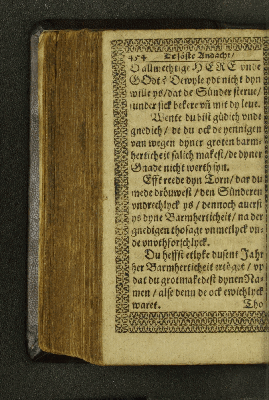 454 De föfte Andacht/
O allmechtige HERE vnde
GOdt: Dewyle ydt nicht dyn
wille ys / dat de Sünder sterue/
sunder sick bekere vñ mit dy leue.
Wente du bist güdich vnde
gnedich / de du ock de yennigen
van wegen dyner groten barm-
herticheit salich makest / de dyner
Gnade nicht werth syn.
Efft reede dyn Torn / dar du
mede dröuwest / den Sünderen
vndrechlyck ys / dennoch auerst
ys dyne Barmherticheit / na der
gnedigen thosage vnmetlyck vn-
de vnuthforschlyck.
Du heffst etlyke dusent Jahr
her Barmherticheit ertöget / vp
dat du grotmakedest dynen Na-
men / alse denn de ock ewichlyck
waret. Tho